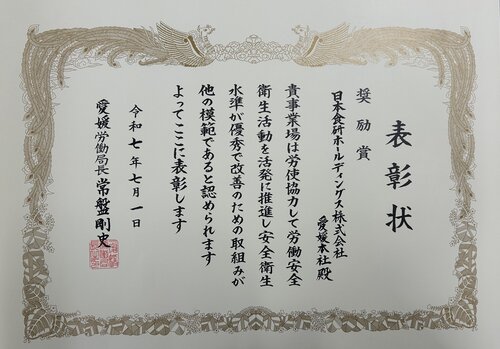 表彰状
奨励賞
日本食研ホールディングス株式会社
愛媛本社殿
貴事業場は労使協力して労働安全
衛生活動を活発に推進し安全衛生
水準が優秀で改善のための取組みが
他の模範であると認められます
よってここに表彰します
令和七年七月一日
愛媛労働局長 常盤剛史